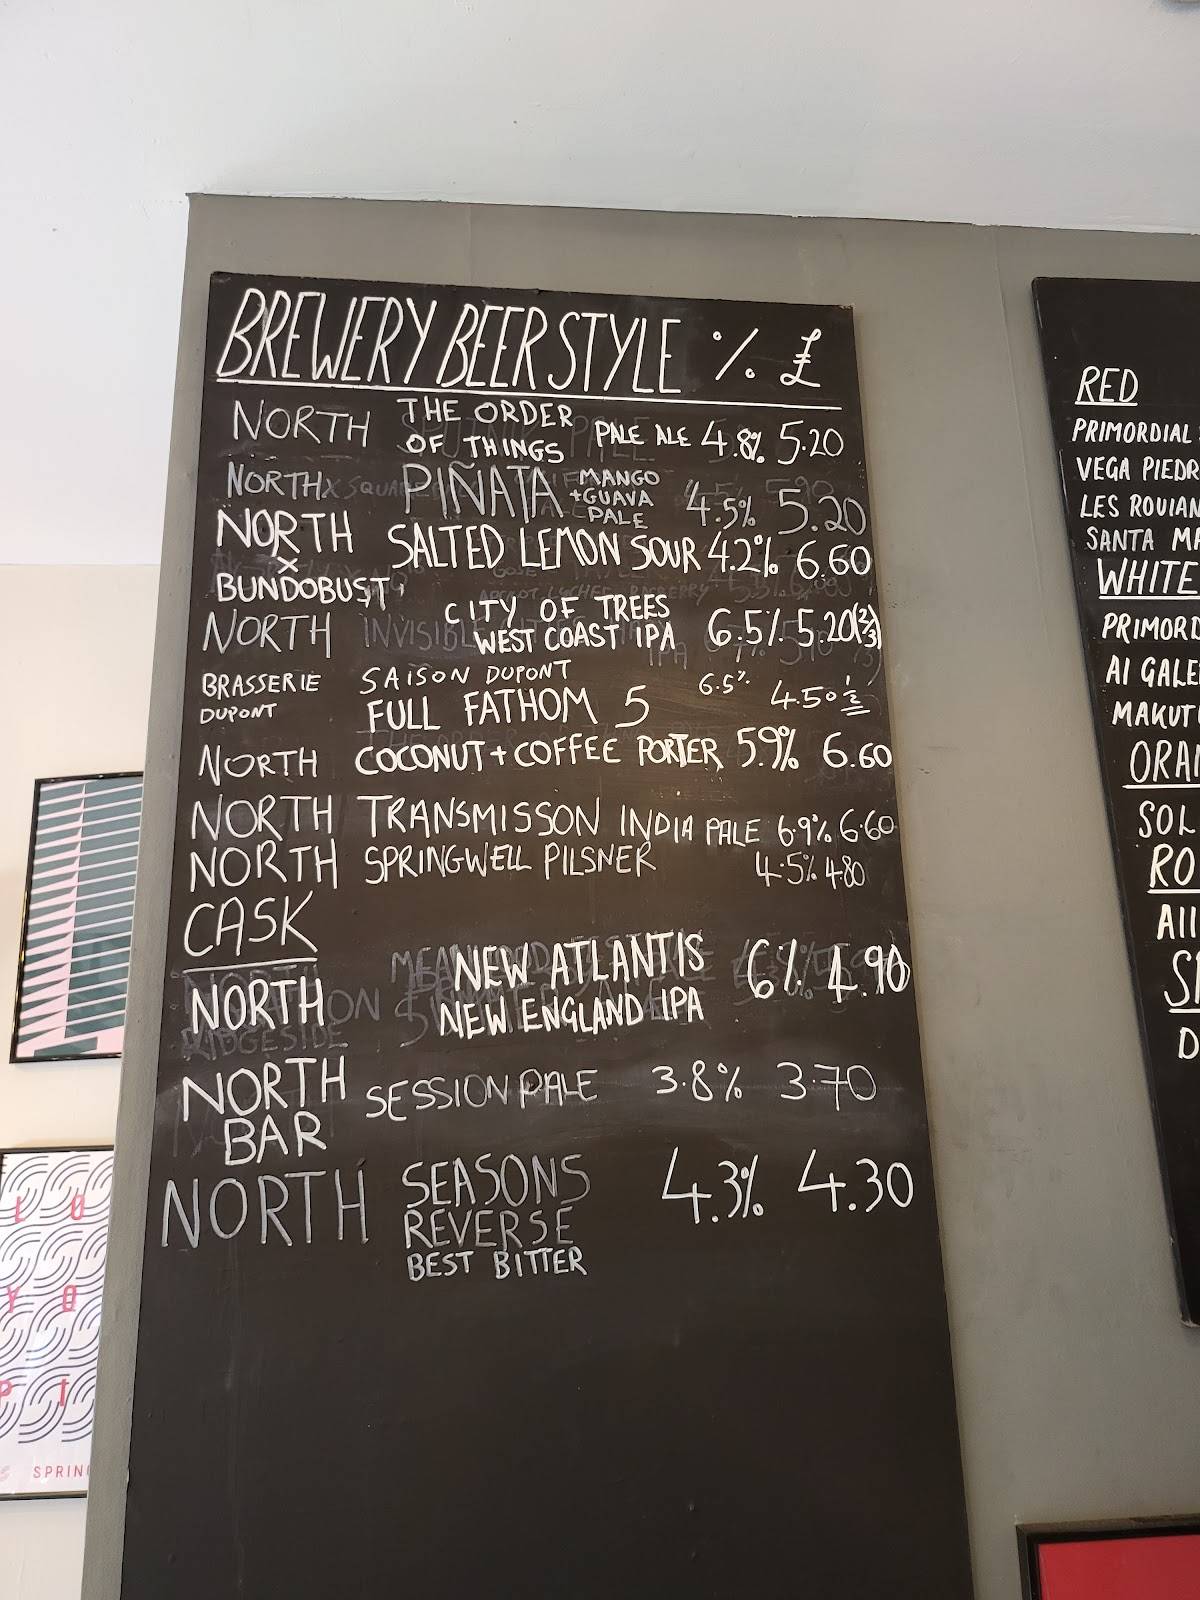 BREWERY BEER STYLE % £
NORTH THE ORDER OF THINGS PALE ALE 4.8% 5.20
NORTH PIÑATA MANGO +GUAVA PALE 4.5% 5.20
NORTH X BUNDOBUST SALTED LEMON SOUR 4.2% 6.60
NORTH CITY OF TREES WEST COAST IPA 6.5% 5.20(2/3)
BRASSERIE DUPONT SAISON DUPONT 6.5% 4.50 1/2
FULL FATHOM 5
NORTH COCONUT + COFFEE PORTER 5.9% 6.60
NORTH TRANSMISSON INDIA PALE 6.9% 6.60
NORTH SPRINGWELL PILSNER 4.5% 4.80
CASK
NORTH NEW ATLANTIS NEW ENGLAND IPA 6% 4.90
NORTH BAR SESSION PALE 3.8% 3.70
NORTH SEASONS REVERSE BEST BITTER 4.3% 4.30
RED
PRIMORDIAL
VEGA PIEDR
LES ROUIAN
SANTA MA
WHITE
PRIMORD
AI GALE
MAKUT
ORAN
SOL
RO
AII
SP
D
L O
Y O
P I
SPRIN